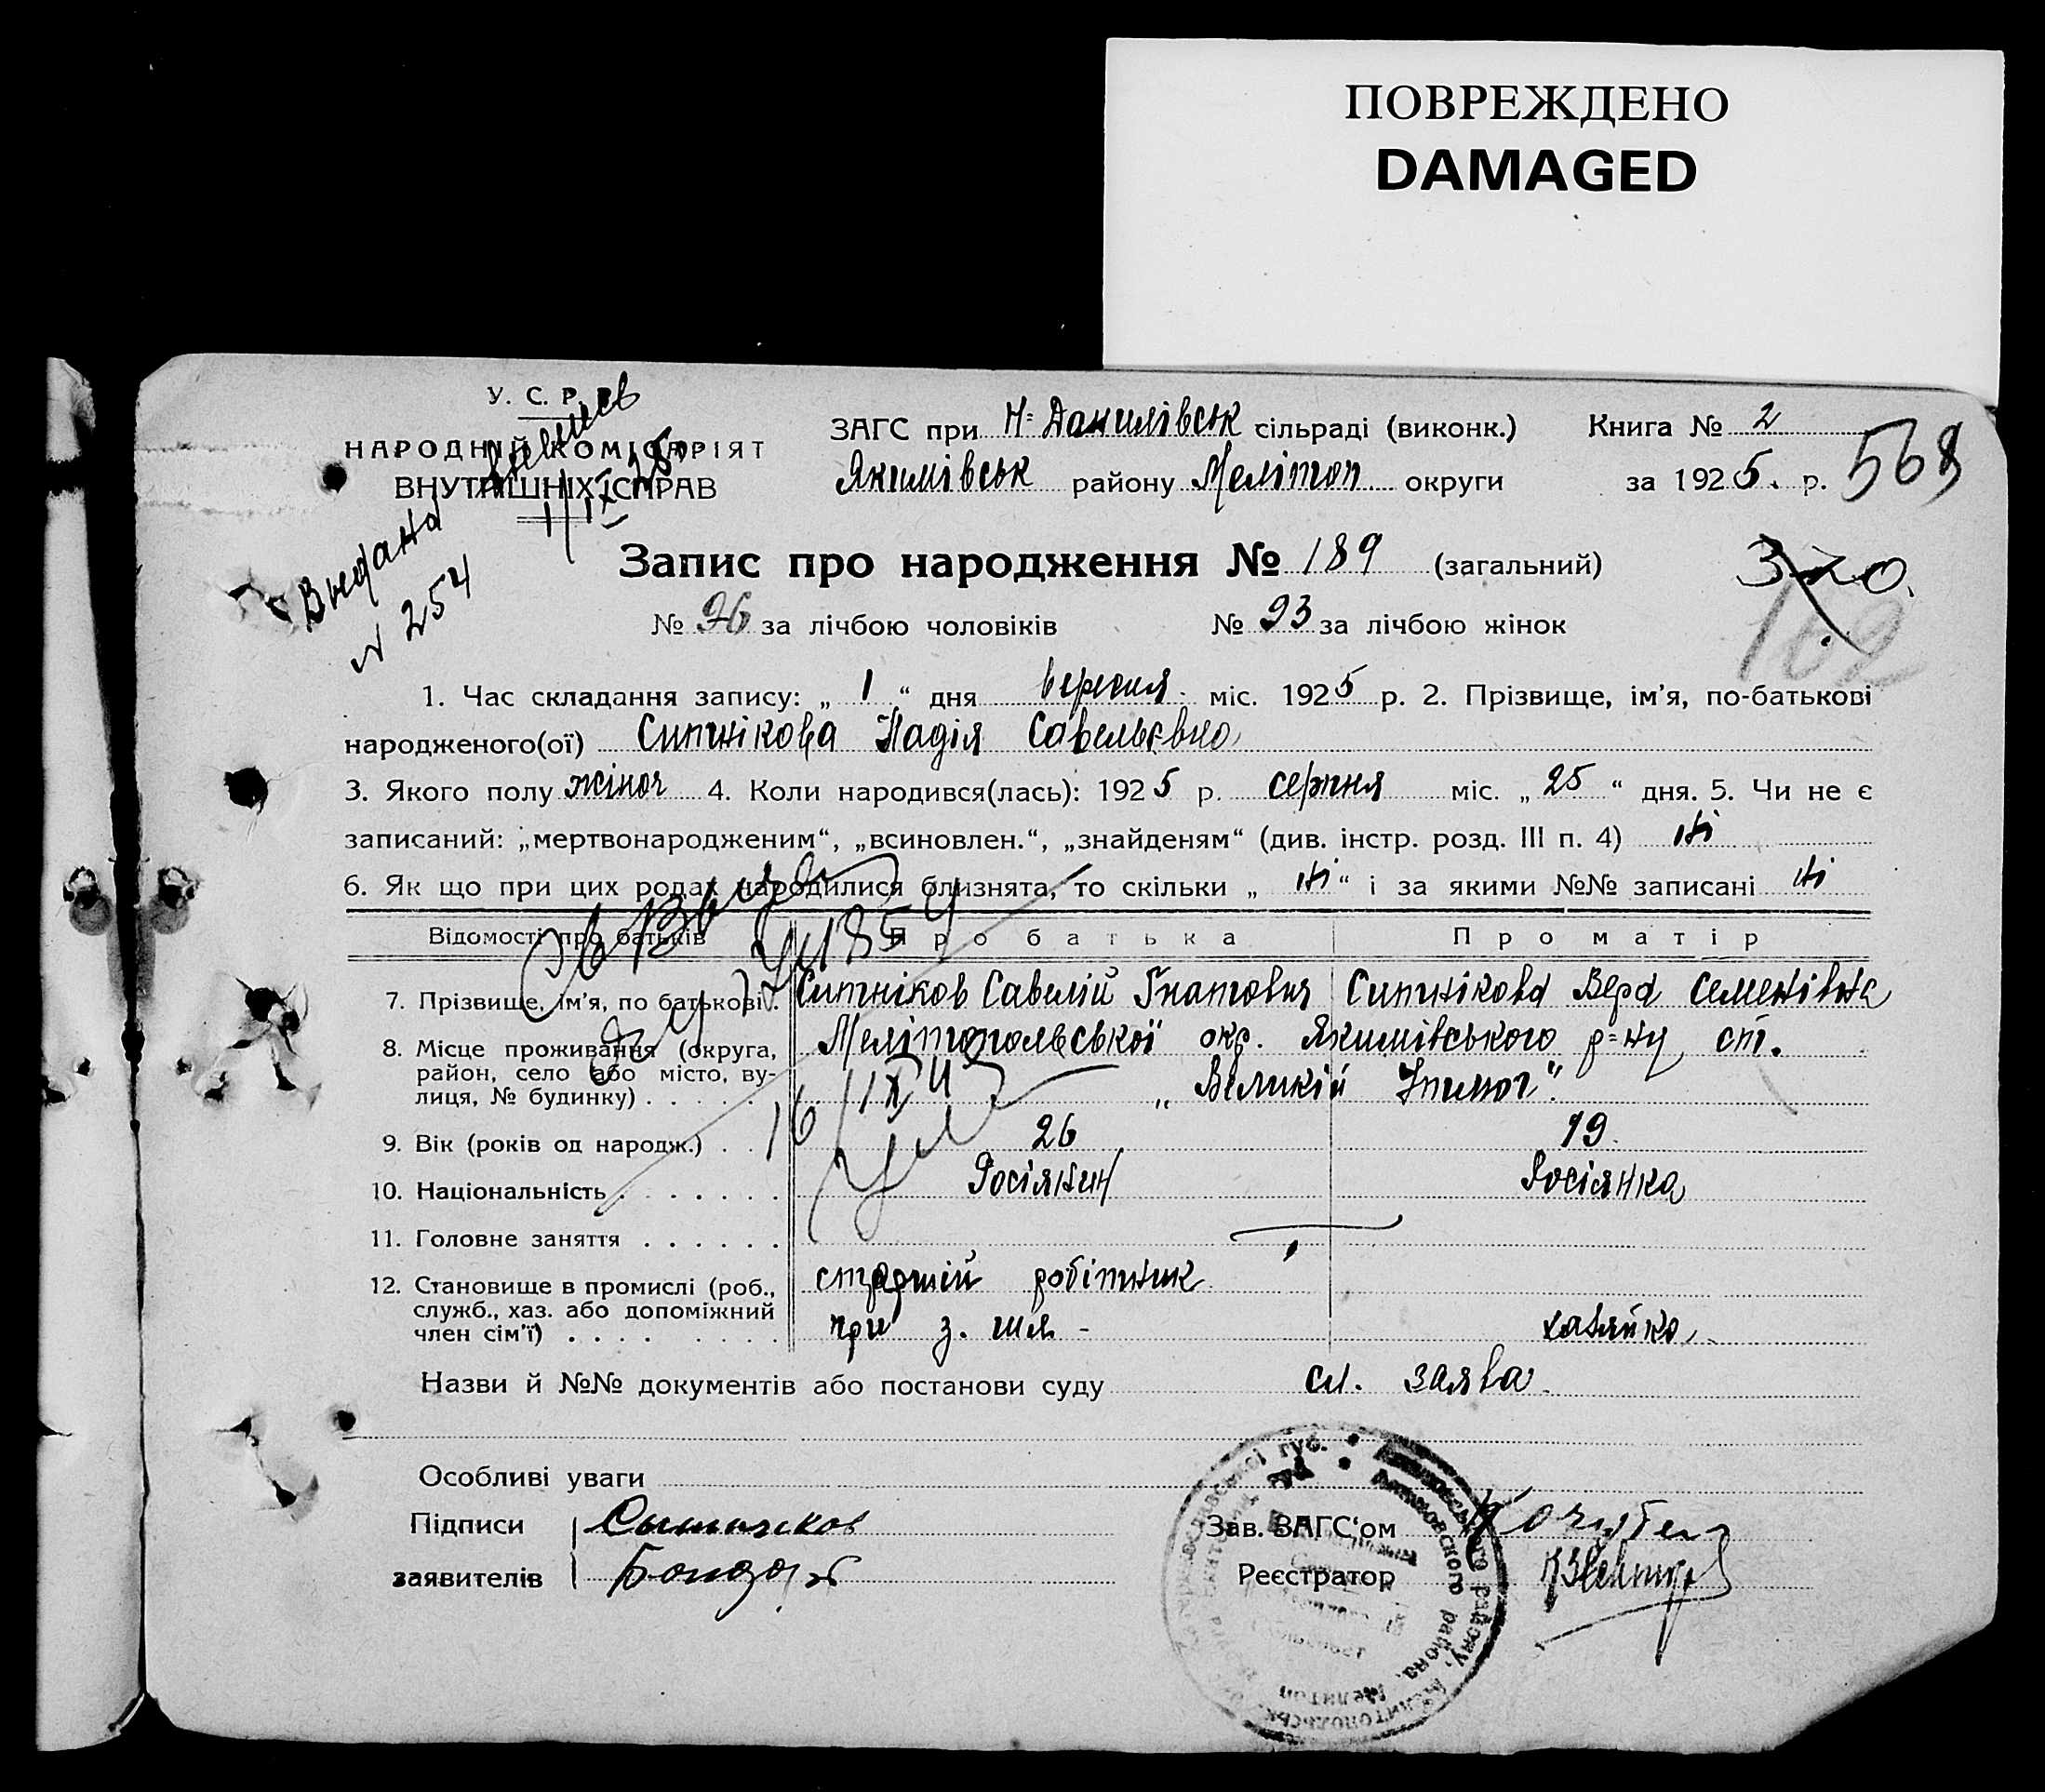 ПОВРЕЖДЕНО
DAMAGED
У. С. Р. Р.
НАРОДНІЙ КОМІСАРІЯТ
ВНУТРІШНІХ СПРАВ
ЗАГС при Н-Данилівськ сільраді (виконк.) Книга № 2
Якимівськ району Мелітоп округи за 1925 р. 568
Выдана
N 254
Запис про народження № 189 (загальний)
320.
№ 96 за лічбою чоловіків № 93 за лічбою жінок
162
1. Час складання запису: „ 1 “ дня вересня міс. 1925 р. 2. Прізвище, ім’я, по-батькові
народженого(ої) Ситнікова Надія Савельєвна
3. Якого полу жіноч 4. Коли народився(лась): 1925 р. серпня міс. „ 25 “ дня. 5. Чи не є
записаний: „мертвонародженим“, „всиновлен.“, „знайденям“ (див. інстр. розд. III п. 4) ні
6. Як що при цих родах народилися близнята, то скільки „ ні “ і за якими №№ записані ні
Відомості про батьків Про батька Про матір
7. Прізвище, ім’я, по батькові. Ситніков Савелій Гнатович Ситнікова Вера Семенівна
8. Місце проживання (округа, Мелітопольської окр. Якимівського р-ну ст.
район, село або місто, ву-
лиця, № будинку) . . . . . „Великій Утлюг“.
9. Вік (років од народж.) . . 26 19.
10. Національність . . . . . . . Росіянин Росіянка
11. Головне заняття . . . . . .
12. Становище в промислі (роб., старший робітник
служб., хаз. або допоміжний
член сім’ї) . . . . . . . . при з. шл. - хазяйка
Назви й №№ документів або постанови суду сл. заява.
Особливі уваги
Підписи Сытников Зав. ЗАГС‘ом
заявителів Реєстратор